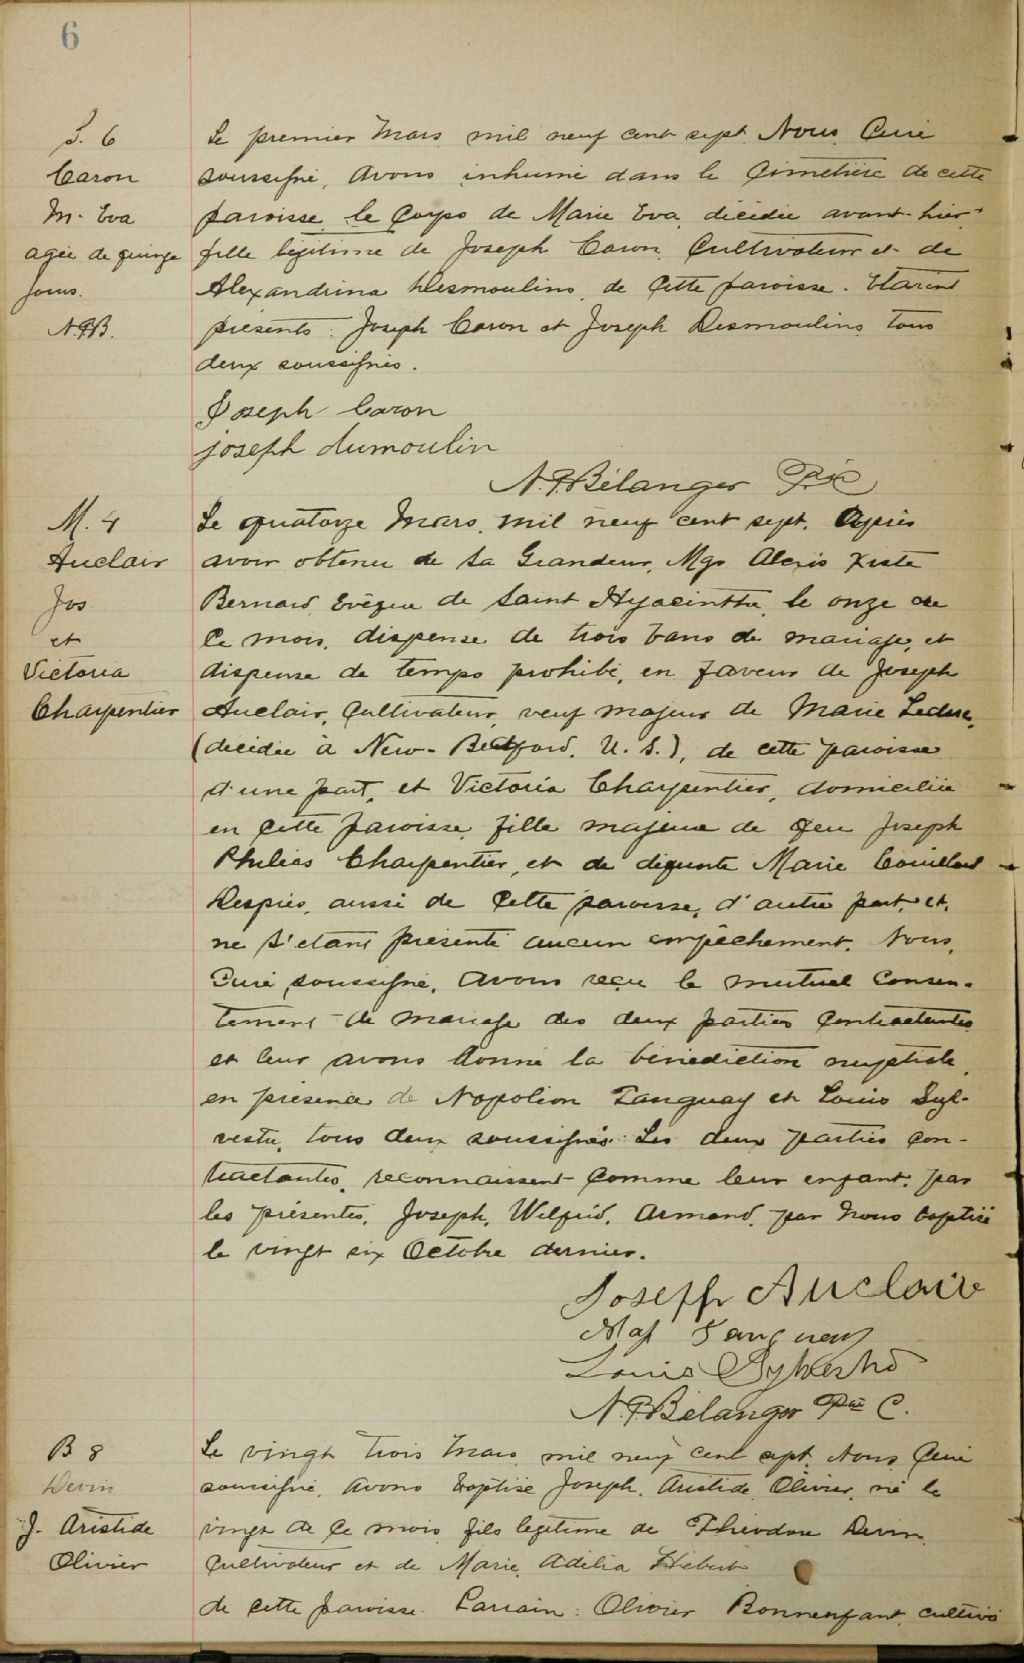 6
S. 6
Caron
M. Eva
agée de quinze
jours.
N.P.B.
Le premier Mars, mil neuf cent sept. Nous, Curé
soussigné, avons inhumé dans le Cimetière de cette
paroisse, le Corps de Marie Eva, décédée avant-hier,
fille légitime de Joseph Caron, Cultivateur et de
Alexandrina Desmoulins, de Cette paroisse. Etaient
présents: Joseph Caron et Joseph Desmoulins tous
deux soussignés.
Joseph Caron
joseph dumoulin
N.P. Bélanger Ptre
M. 4
Auclair
Jos
et
Victoria
Charpentier
Le quatorze Mars, mil neuf cent sept. Après
avoir obtenu de Sa Grandeur, Mgr Alexis Xiste
Bernard, Evêque de Saint Hyacinthe, le onze de
Ce mois, dispense de trois bans de mariage, et
dispense de temps prohibé, en faveur de Joseph
Auclair, Cultivateur, veuf majeur de Marie Leduc,
(décédée à New-Bedford, U. S.), de cette paroisse
d'une part, et Victoria Charpentier, domiciliée
en Cette paroisse, fille majeure de feu Joseph
Philias Charpentier, et de défunte Marie Couillard
Després, aussi de Cette paroisse, d'autre part, et,
ne s'étant présenté aucun empêchement, Nous,
Curé soussigné, avons reçu le mutuel Consen-
tement de mariage des deux parties Contractantes
et leur avons donné la bénédiction nuptiale,
en présence de Napoléon Tanguay et Louis Syl-
vestre, tous deux soussignés. Les deux parties Con-
tractantes, reconnaissent Comme leur enfant, par
les présentes, Joseph, Wilfrid, Armand, par Nous baptisé
le vingt six Octobre dernier.
Joseph Auclair
Nap Tanguay
Louis Sylvestre
N.P. Bélanger Ptre C.
B 8
Devin
J. Aristide
Olivier
Le vingt trois Mars, mil neuf cent sept, Nous Curé
soussigné, avons baptisé Joseph, Aristide, Olivier, né le
vingt de Ce mois, fils légitime de Théodore Devin,
Cultivateur et de Marie, Adélia Hébert
de Cette paroisse. Parrain: Olivier Bonnenfant, cultiva